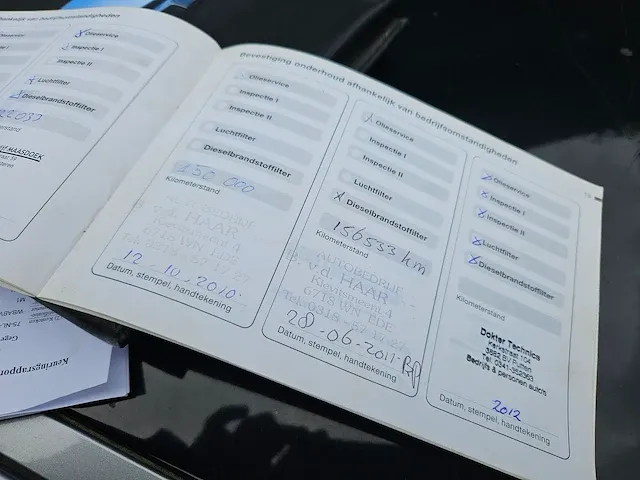 afhankelijk van bedrijfsomstandigheden
Olieservice
Inspectie I
Inspectie II
Luchtfilter
Dieselbrandstoffilter
MAASDOEK
Bevestiging onderhoud afhankelijk van bedrijfsomstandigheden
Olieservice
Inspectie I
Inspectie II
Luchtfilter
Dieselbrandstoffilter
150 000
Kilometerstand
HAAR
12-10-2010
Datum, stempel, handtekening
Olieservice
Inspectie I
Inspectie II
Luchtfilter
X Dieselbrandstoffilter
156533 km
Kilometerstand
AUTOBEDRIJF
v.d. HAAR
6718 WN EDE
28-06-2011
Datum, stempel, handtekening
Olieservice
X Inspectie I
X Inspectie II
X Luchtfilter
X Dieselbrandstoffilter
Kilometerstand
Dokter Technics
Kerkstraat 104
3882 BV Putten
Tel. 0341-352363
Bedrijfs & personen auto's
2012
Datum, stempel, handtekening
Keuringsrapport